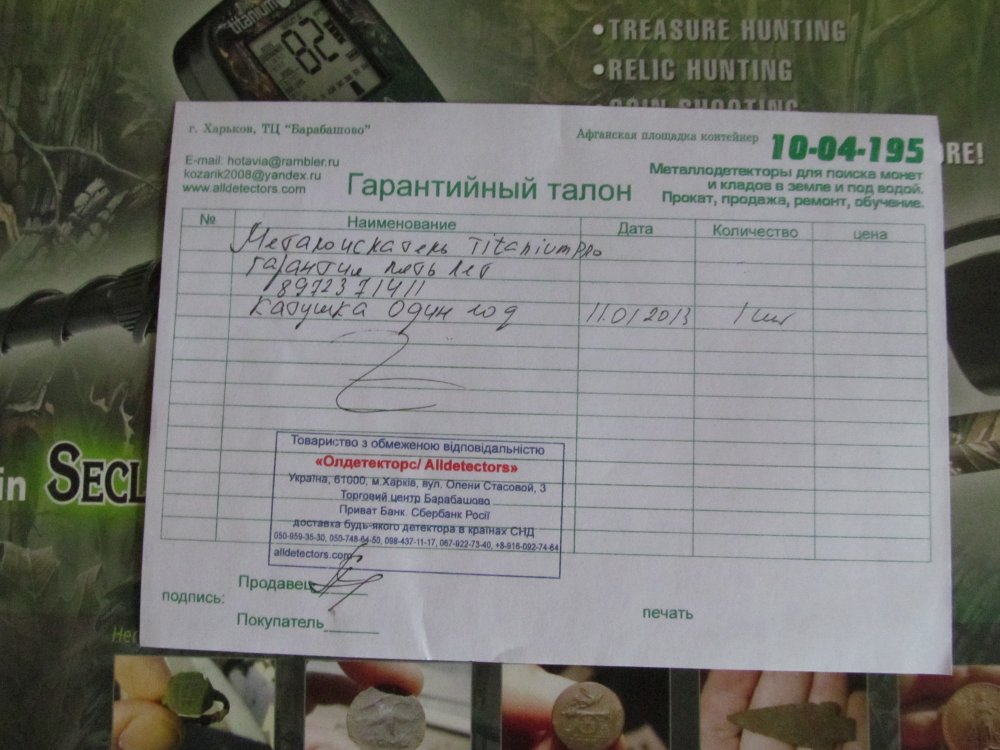 titanium
82
•TREASURE HUNTING
•RELIC HUNTING
•COIN SHOOTING
ORE!
г. Харьков, ТЦ "Барабашово"
Афганская площадка контейнер 10-04-195
E-mail: hotavia@rambler.ru
kozarik2008@yandex.ru
www.alldetectors.com
Гарантийный талон
Металлодетекторы для поиска монет
и кладов в земле и под водой.
Прокат, продажа, ремонт, обучение.
№ Наименование Дата Количество цена
Металоискатель TitaniumPro
гарантия пять лет
8972371411
катушка один год 11.01 2013 1 шт
in SECL
Товариство з обмеженою відповідальністю
«Олдетекторс/ Alldetectors»
Україна, 61000, м.Харків, вул. Олени Стасовой, 3
Торговий центр Барабашово
Приват Банк. Сбербанк Росії
доставка будь-якого детектора в країнах СНД
050-959-35-30, 050-748-64-50, 098-437-11-17, 067-922-73-40, +8-916-092-74-64
alldetectors.com
Продавец
подпись:
Покупатель
печать